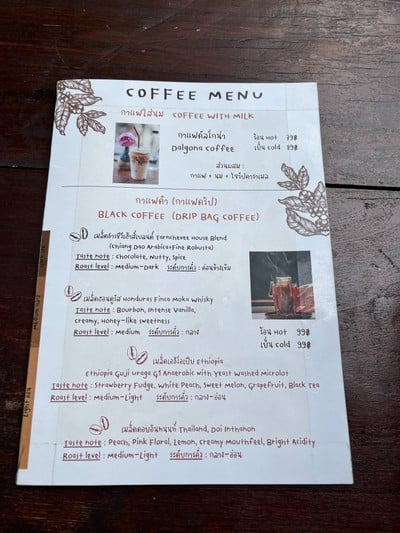 COFFEE MENU
กาแฟใส่นม COFFEE WITH MILK
กาแฟดัลโกน่า ร้อน Hot 79฿
Dalgona Coffee เย็น Cold 89฿
ส่วนผสม :
กาแฟ + นม + ไซรัปคาราเมล
กาแฟดำ (กาแฟดริป)
BLACK COFFEE (DRIP BAG COFFEE)
House Blend
(Chiang Dao Arabica+Fine Robusta)
Taste note : Chocolate, Nutty, Spice
Roast level : Medium-Dark ระดับการคั่ว : ค่อนข้างเข้ม
เมล็ดฮอนดูรัส Honduras Finca Moka Whisky
Taste note : Bourbon, Intense Vanilla,
Creamy, Honey-like sweetness
Roast level : Medium ระดับการคั่ว : กลาง
ร้อน Hot 99฿
เย็น Cold 99฿
เมล็ดเอธิโอเปีย Ethiopia
Ethiopia Guji Uraga G1 Anaerobic with Yeast Washed Microlot
Taste note : Strawberry Fudge, White Peach, Sweet Melon, Grapefruit, Black Tea
Roast level : Medium-Light ระดับการคั่ว : กลาง-อ่อน
เมล็ดดอยอินทนนท์ Thailand, Doi Inthanon
Taste note : Peach, Pink Floral, Lemon, Creamy Mouthfeel, Bright Acidity
Roast level : Medium-Light ระดับการคั่ว : กลาง-อ่อน